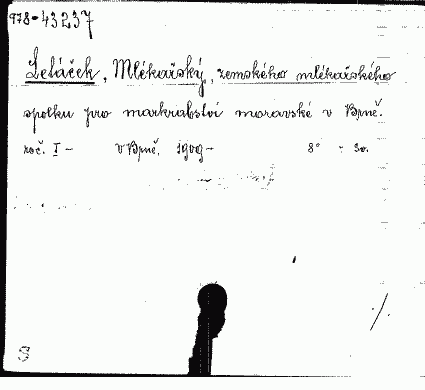 978-43237
Letáček, Mlékařský, zemského mlékařského
spolku pro markrabství moravské v Brně.
roč. I - v Brně. 1909 - 8°
S